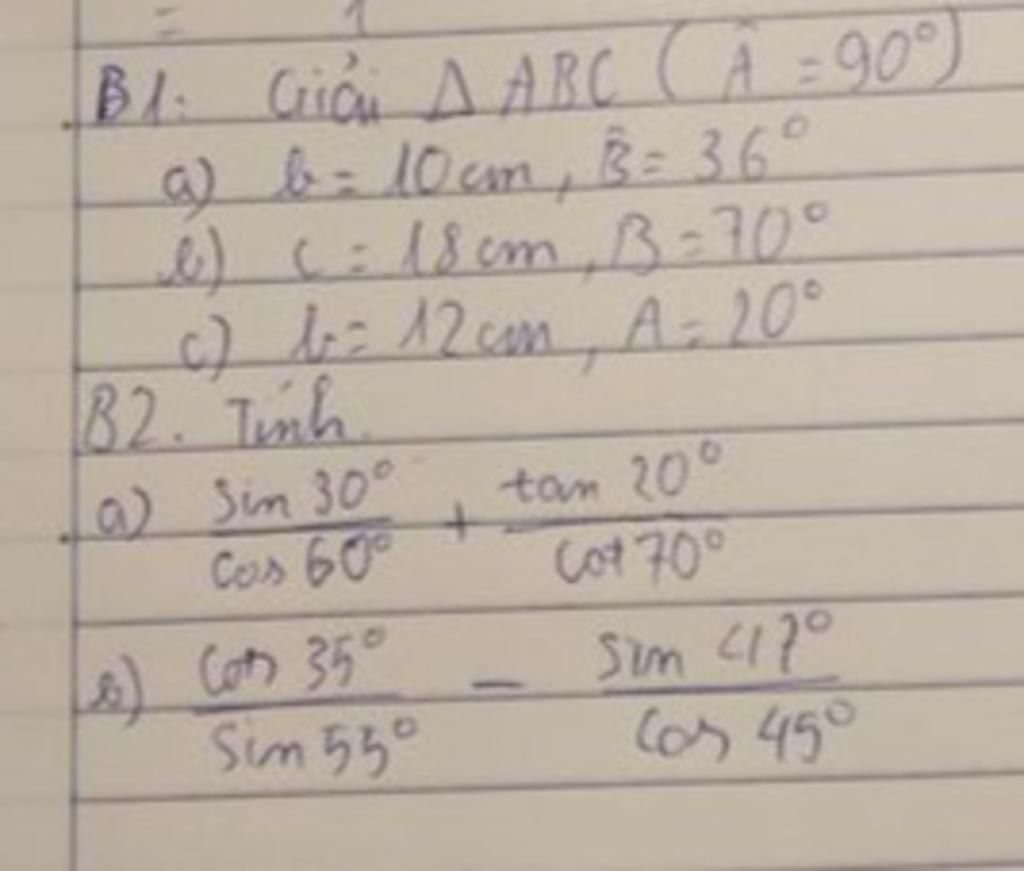 B1: Giải Δ ABC ( Â = 90°)
a) b = 10 cm, B̂ = 36°
b) c = 18 cm, B = 70°
c) b = 12 cm, A = 20°
B2. Tính
a) sin 30° / cos 60° + tan 20° / cot 70°
b) cos 35° / sin 55° - sin 47° / cos 45°